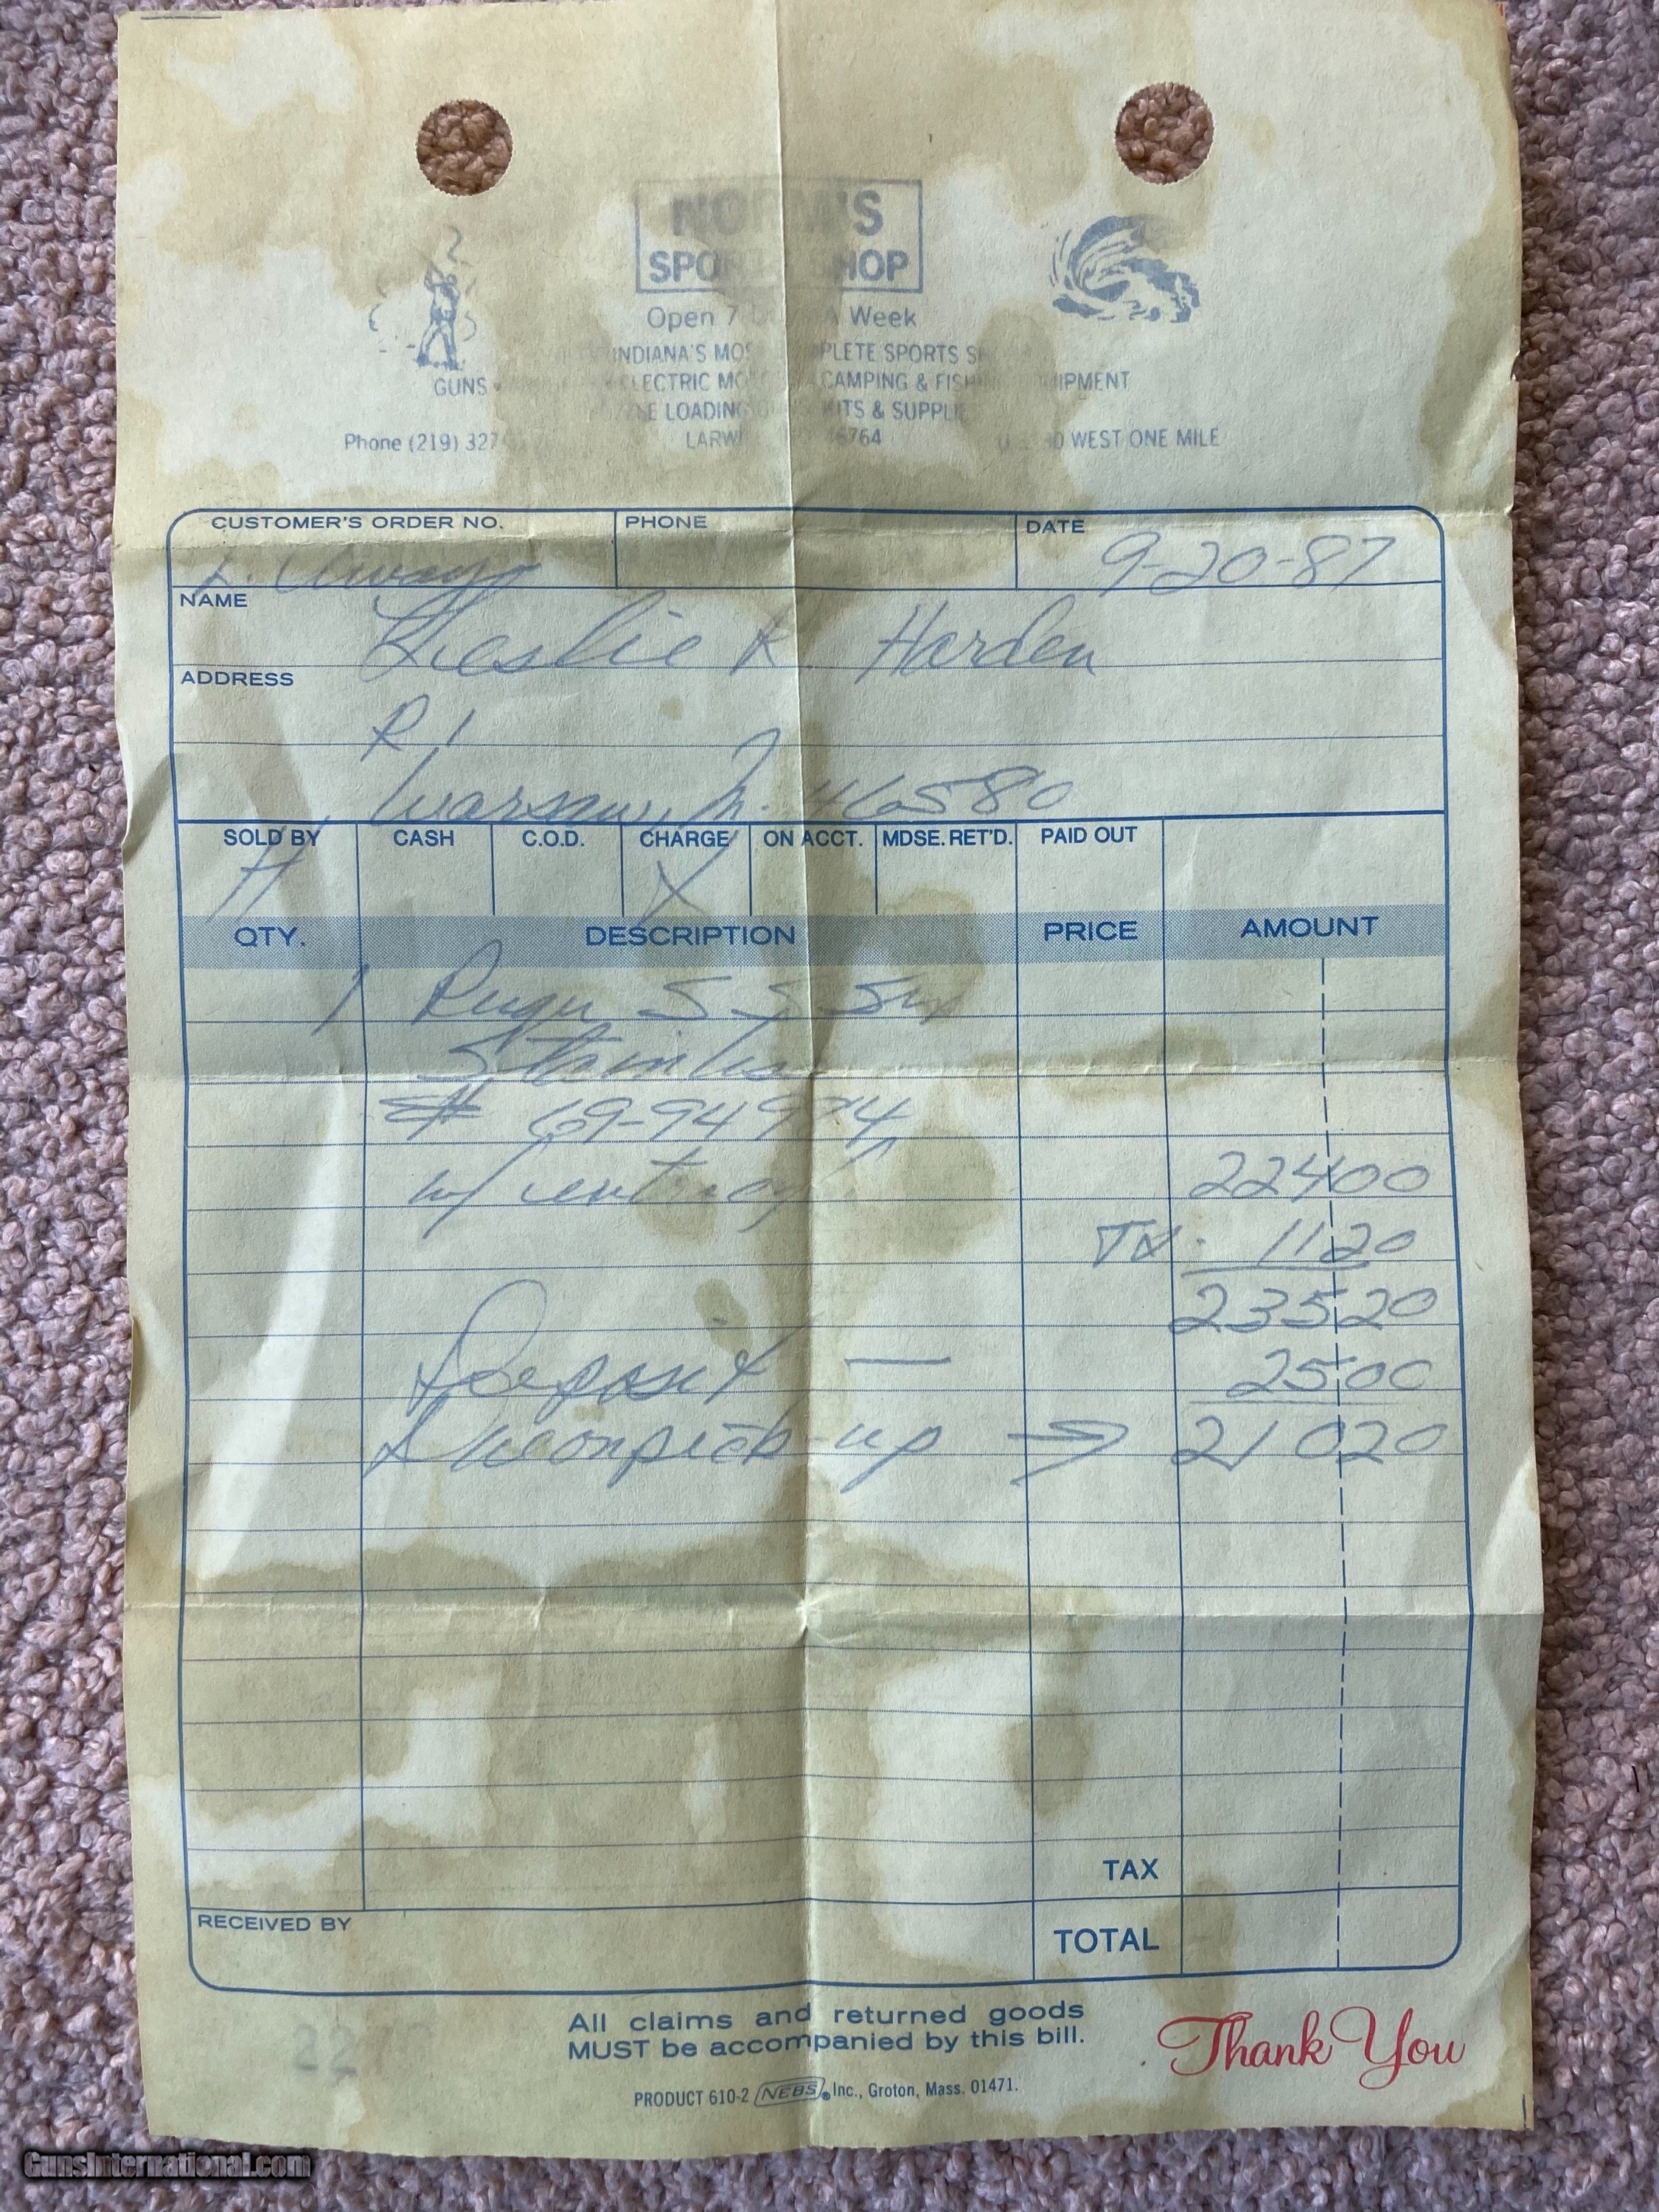 NORM'S
SPORT SHOP
Open 7 Days A Week
INDIANA'S MOST COMPLETE SPORTS
GUNS ELECTRIC CAMPING & FISHING EQUIPMENT
LOADING KITS & SUPPLIES
Phone (219) 327 LARWILL 46764 U.S. 30 WEST ONE MILE
CUSTOMER'S ORDER NO. PHONE DATE
9-20-87
NAME
Leslie K. Harden
ADDRESS
R 1
Warsaw, In. 46580
SOLD BY CASH C.O.D. CHARGE ON ACCT. MDSE. RET'D. PAID OUT
H X
QTY. DESCRIPTION PRICE AMOUNT
1 Ruger S S Six
Stainless
# 69-94974
w/ 22400
TX. 1120
23520
Deposit — 2500
pick-up → 21020
TAX
RECEIVED BY
TOTAL
All claims and returned goods
MUST be accompanied by this bill.
Thank You
PRODUCT 610-2 NEBS Inc., Groton, Mass. 01471.
GunsInternational.com